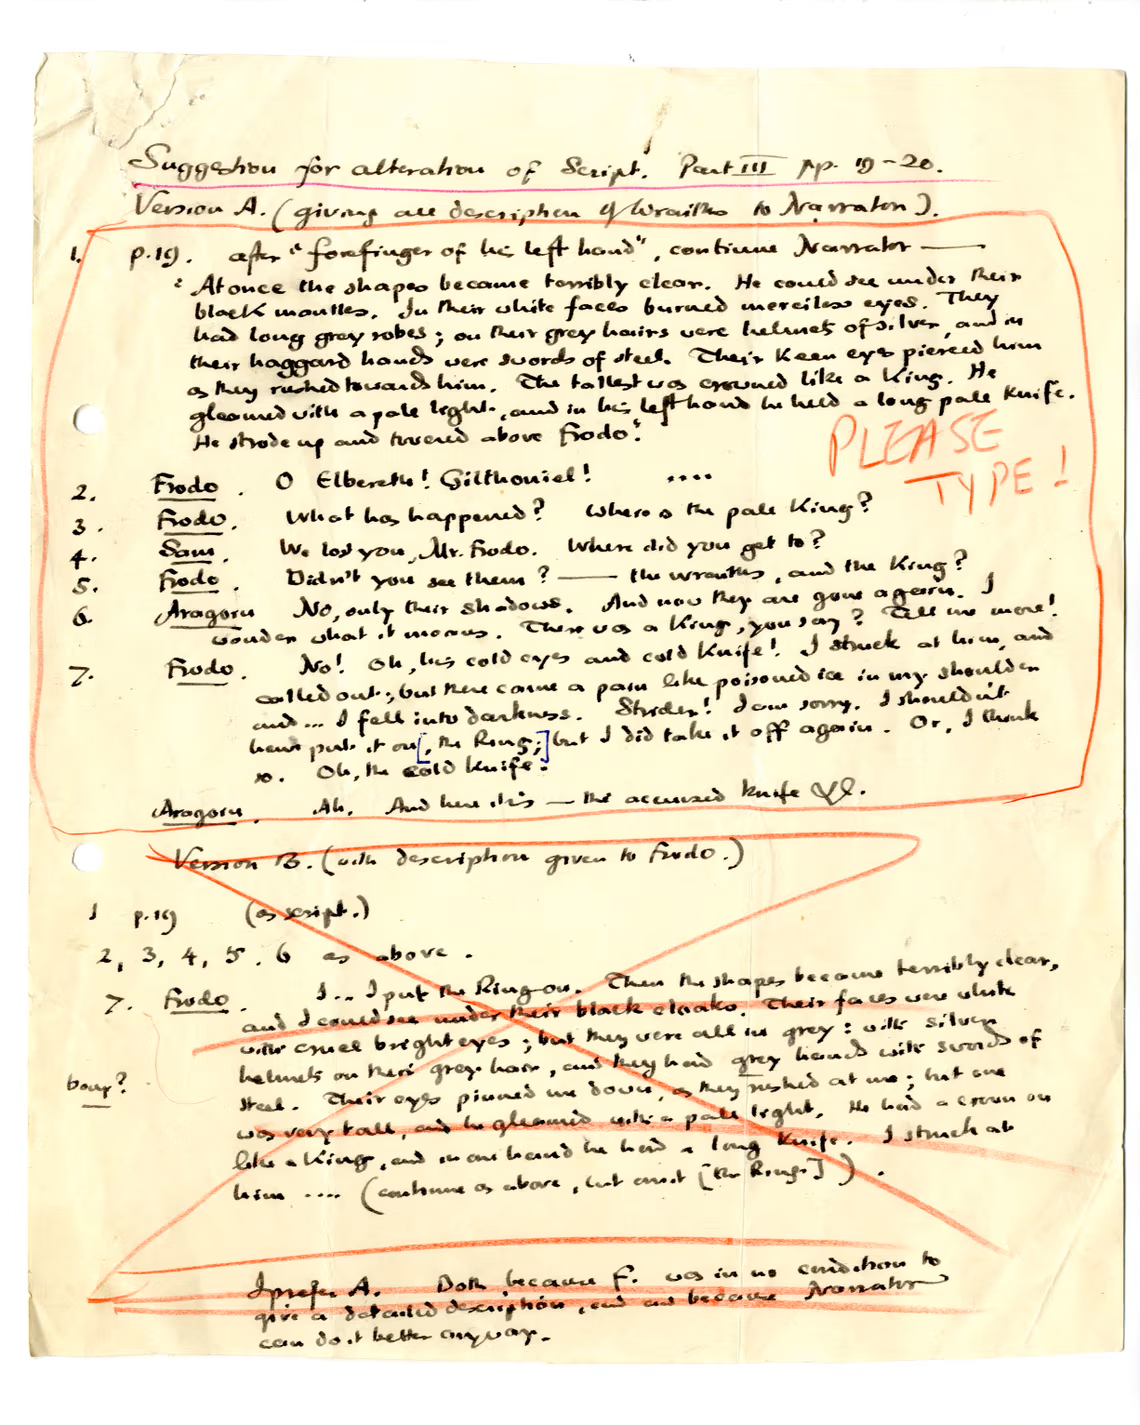 Suggestion for alteration of Script. Part III pp. 19-20.
Version A. (giving all description of Wraiths to Narrator).
1. p.19. after "forefinger of his left hand", continue Narrator ——
" At once the shapes became terribly clear. He could see under their
black mantles. In their white faces burned merciless eyes. They
had long grey robes; on their grey hairs were helmets of silver, and in
their haggard hands were swords of steel. Their keen eyes pierced him
as they rushed towards him. The tallest was crowned like a King. He
gleamed with a pale light, and in his left hand he held a long pale knife.
He strode up and towered above Frodo".
PLEASE
TYPE!
2. Frodo. O Elbereth! Gilthoniel! ....
3. Frodo. What has happened? Where is the pale King?
4. Sam. We lost you, Mr. Frodo. Where did you get to?
5. Frodo. Didn't you see them? —— the wraiths, and the King?
6. Aragorn No, only their shadows. And now they are gone again. I
wonder what it means. There was a King, you say? Tell me more!
7. Frodo. No! Oh, his cold eyes and cold knife! I struck at him, and
called out; but there came a pain like poisoned ice in my shoulder
and ... I fell into darkness. Strider! I am sorry. I shouldn't
have put it on [, the Ring;] but I did take it off again. Or, I think
so. Oh, the cold knife!
Aragorn. Ah. And here it is — the accursed knife
Version B. (with description given to Frodo.)
1 p.19 (as script.)
2, 3, 4, 5, 6 as above.
7. Frodo. I... I put the Ring on. Then the shapes became terribly clear,
and I could see under their black cloaks. Their faces were white
with cruel bright eyes; but they were all in grey: with silver
helmets on their grey hair, and they had grey hands with swords of
steel. Their eyes pinned me down, as they rushed at me; but one
was very tall, and he gleamed with a pale light. He had a crown on
like a King, and in one hand he had a long knife. I struck at
him .... (continue as above, but omit [the Ring;]).
I prefer A. Both because F. was in no condition to
give a detailed description, and because Narrator
can do it better anyway.